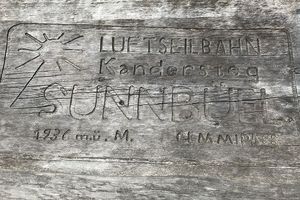 LUFTSEILBAHN
Kandersteg
SUNNBÜEL
1936 m.ü.M.